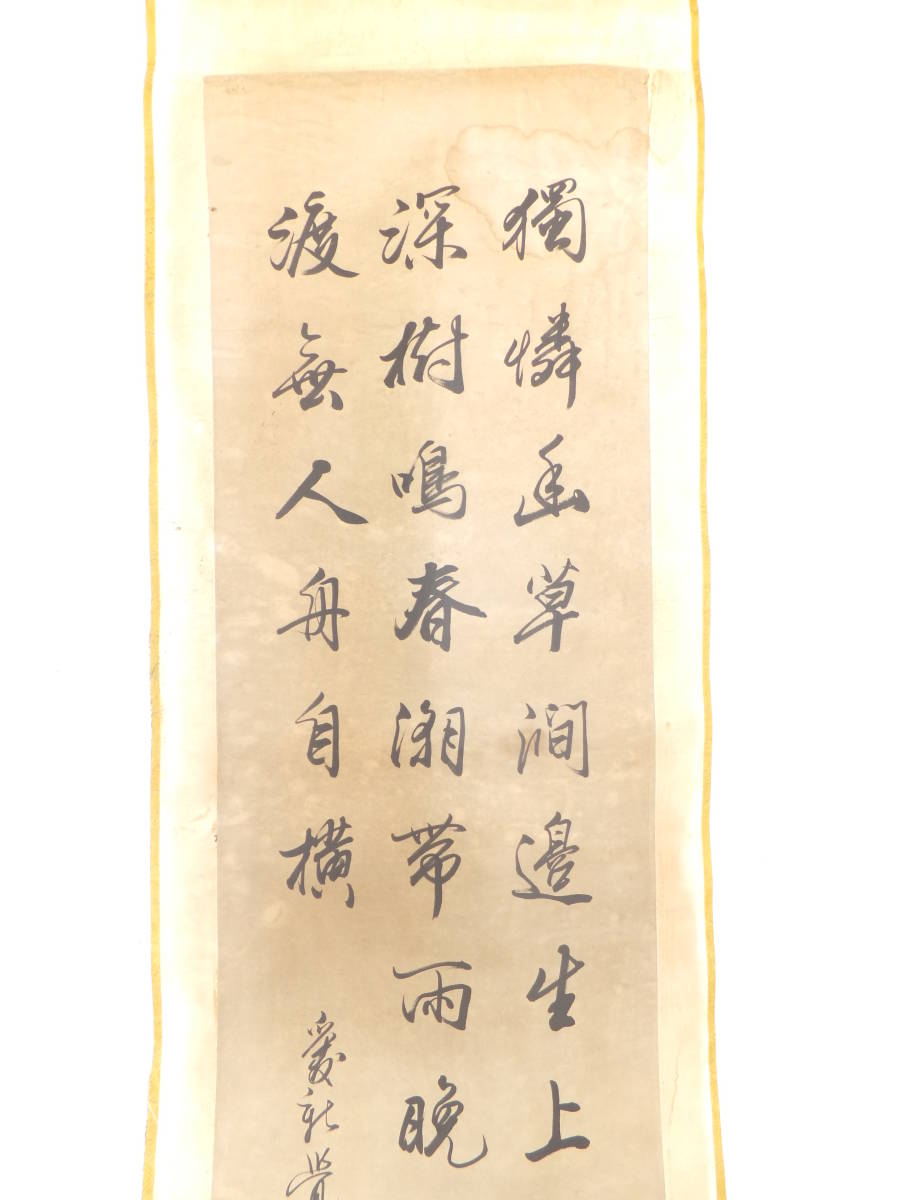 獨憐幽草澗邊生上
深樹鳴春潮帶雨晚
渡無人舟自橫
愛新覺